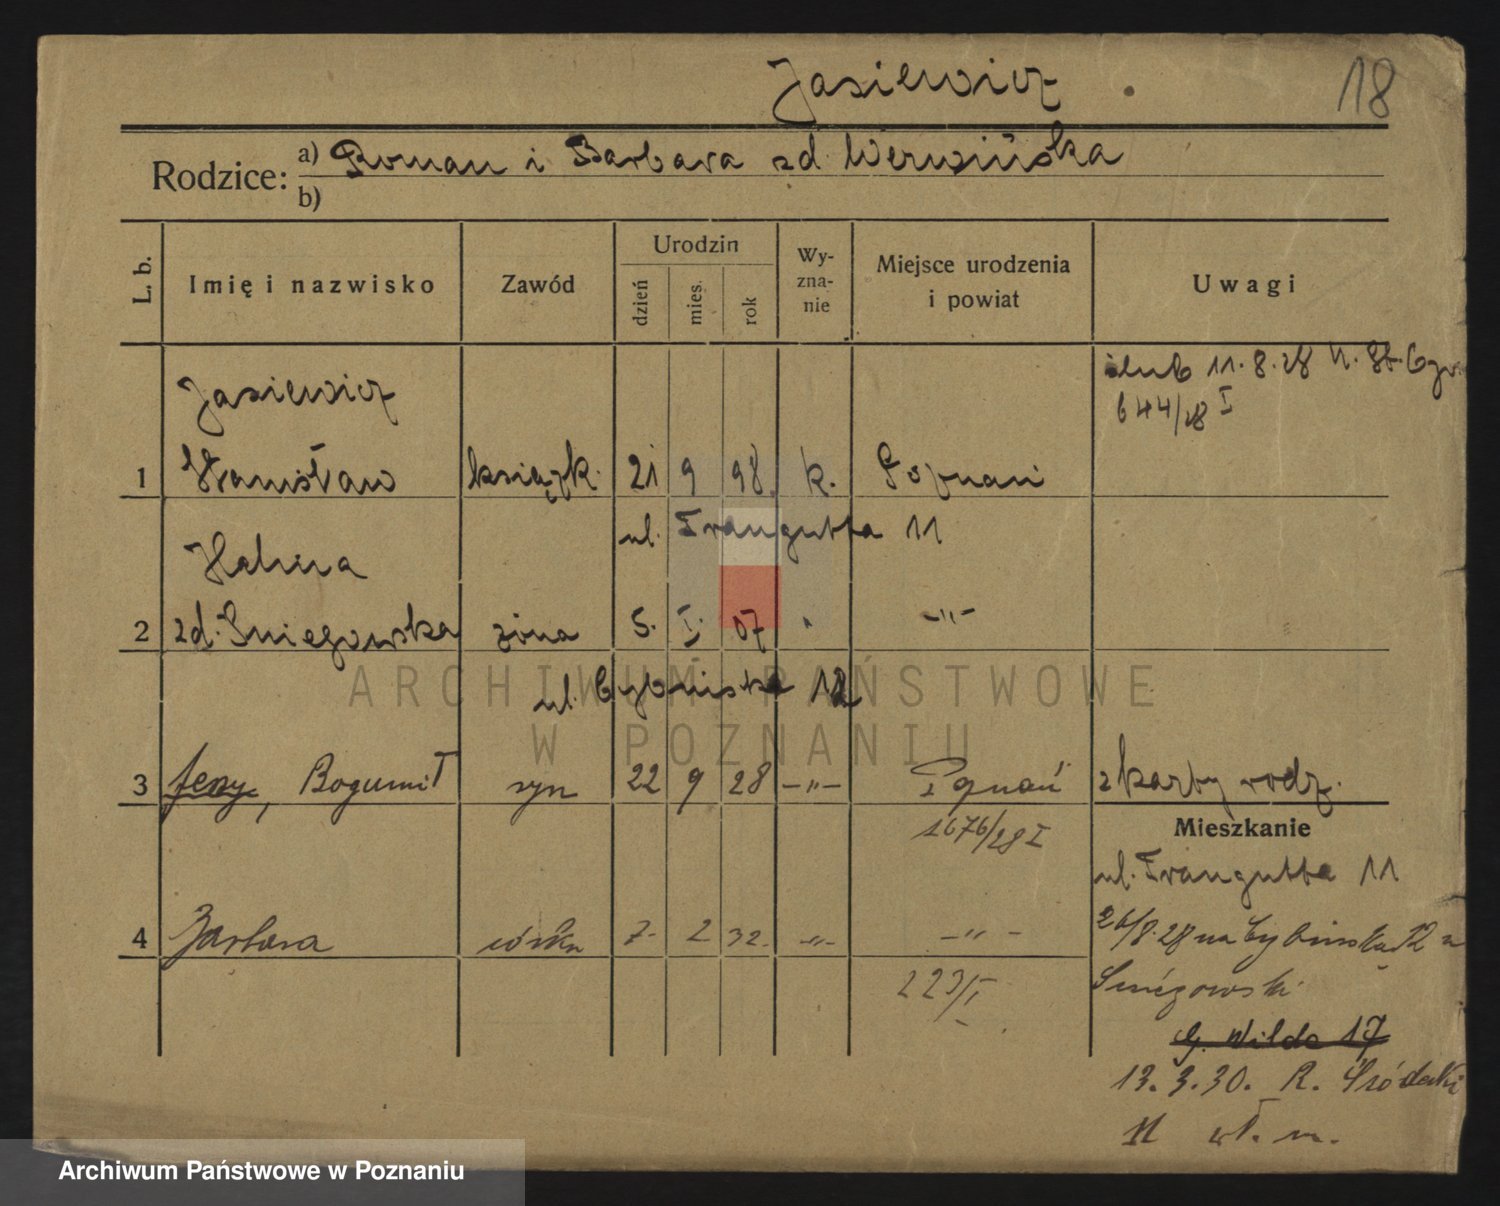 Jasiewicz
18
Rodzice: a) Roman i Barbara zd. Werwińska
b)
L. b.
Imię i nazwisko
Zawód
Urodzin
dzień
mies.
rok
Wy-
zna-
nie
Miejsce urodzenia
i powiat
Uwagi
Jasiewicz
ślub 11.8.28 U. St.
644/28 I
1 Stanisław książk. 21 9 98 k. Poznań
ul. Traugutta 11
Helena
2 zd. Śniegowska żona 5. I. 07 -"-
ul. Cybińska 12
3 Jerzy, Bogumił syn 22 9 28 -"- Poznań z karty rodz.
1676/28 I
Mieszkanie
ul. Traugutta 11
4 Barbara córka 7. 2 32. -"- -"-
26/8.28 na Cybińską 12 u
223/I
Śniegowski
G. Wilda 17
13.3.30. R. Śródecki
11 wł. m.
ARCHIWUM PAŃSTWOWE
W POZNANIU
Archiwum Państwowe w Poznaniu